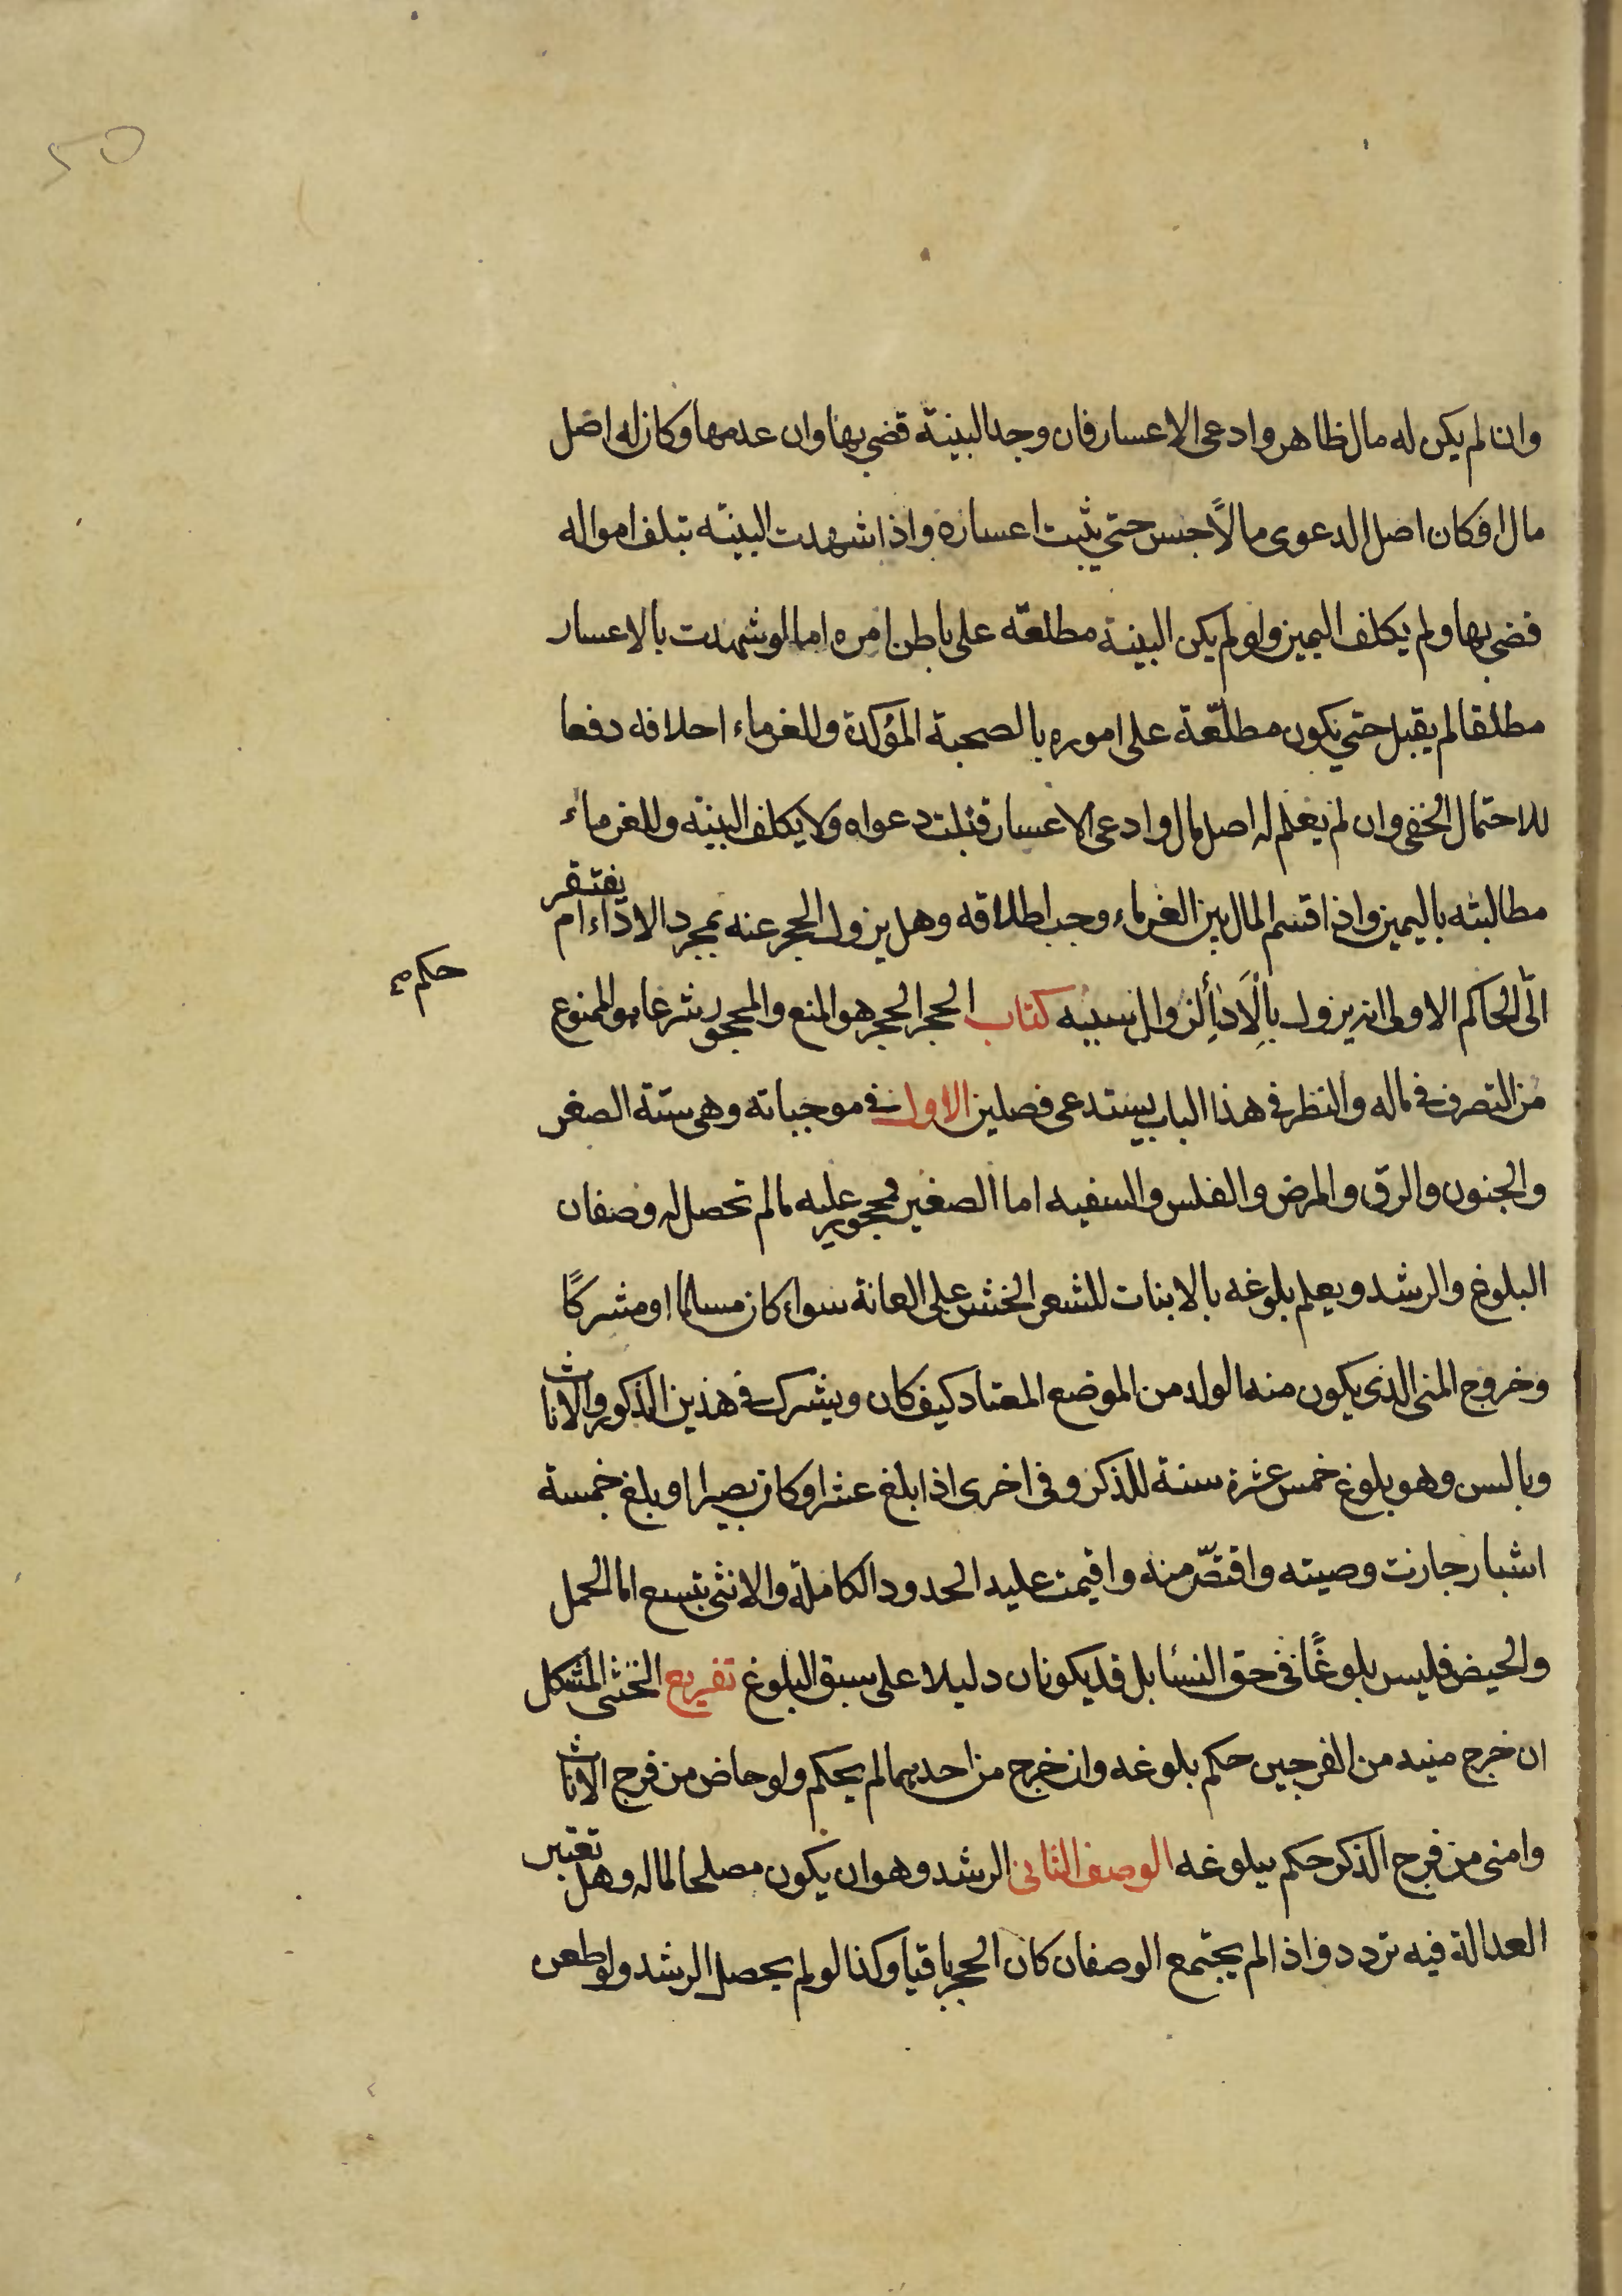 وان لم يكن له مال ظاهر وادعى الاعسار فان وجد البينة قضي بها وان عدمها وكان له اصل
مال او كان اصل الدعوى مالاً حبس حتي يثبت اعساره واذا شهدت البينه بتلف امواله
قضي بها ولم يكلف اليمين ولو لم يكن البينة مطلعّه على باطن امره اما لو شهدت بالاعسار
مطلقا لم يقبل حتي يكون مطلّعة على اموره بالصحبة المؤكدة وللغرماء احلافه دفعا
للاحتمال الخفي وان لم يعلم له اصل مال وادعى الاعسار قبلت دعواه ولا يكلف البينه وللغرماء
مطالبته باليمين واذا قسم المال بين الغرماء وجب اطلاقه وهل يزول الحجر عنه بمجرد الاداء ام يفتقر
الى الحاكم الاولى انه يزول بالاداء لزوال سببه كتاب الحجر الحجر هو المنع والمحجور شرعا هو الممنوع
حكم
من التصرف في ماله والنظر في هذا الباب يستدعى فصلين الاول في موجباته وهى ستة الصغر
والجنون والرق والمرض والفلس والسفيه اما الصغير فمحجور عليه ما لم تحصل له وصفان
البلوغ والرشد ويعلم بلوغه بالانبات للشعر الخشن على العانة سواء كان مسلما او مشركًا
وخروج المنى الذى يكون منه الولد من الموضع المعتاد كيف كان ويشرك في هذين الذكور والاناث
وبالسن وهو بلوغ خمس عشرة سنة للذكر وفى اخرى اذا بلغ عشرا وكان بصيرا او بلغ خمسة
اشبار جازت وصيته واقتصّ منه واقيمت عليه الحدود الكاملة والانثى بتسع اما الحمل
والحيض فليس بلوغًا في حق النسا بل قد يكونان دليلا على سبق البلوغ تفريع الخنثى المشكل
ان خرج منيه من الفرجين حكم بلوغه وان خرج من احديهما لم يحكم ولو حاض من فرج الاناث
وامنى من فرج الذكر حكم ببلوغه الوصف الثانى الرشد وهو ان يكون مصلحا لماله وهل تعتبر
العدالة فيه تردد واذا لم يجتمع الوصفان كان الحجر باقيا وكذا لو لم يحصل الرشد ولو طعن